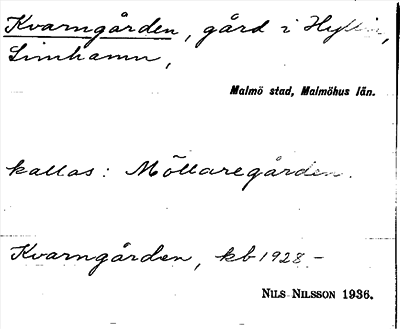 Kvarngården, gård i Hyllie,
Limhamn,
Malmö stad, Malmöhus län.
kallas: Möllaregården.
Kvarngården, kb 1928.-
NILS NILSSON 1936.